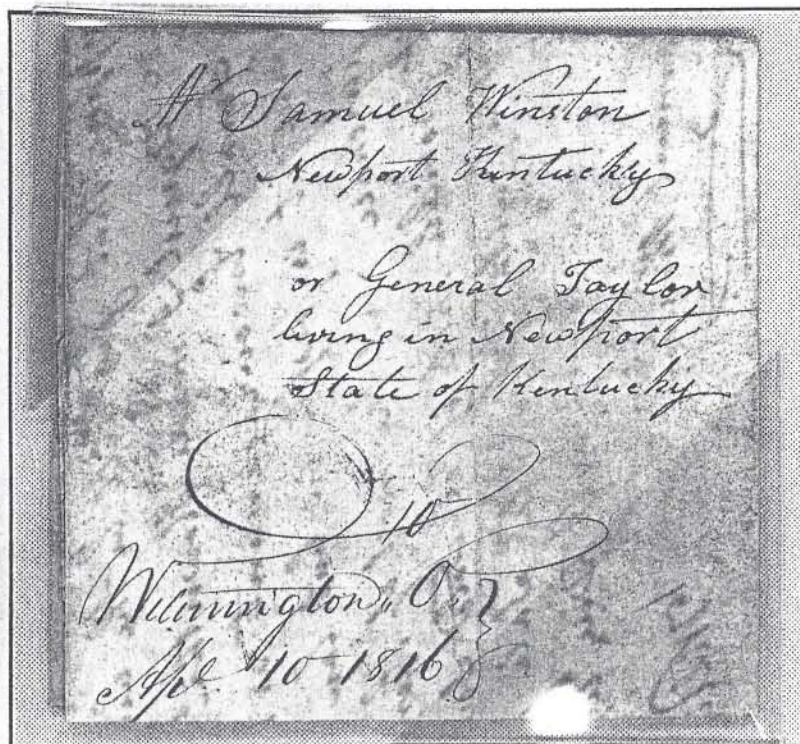 Mr Samuel Winston
Newport Kentucky
or General Taylor
living in Newport
State of Kentucky
10
Wilmington, O.
Apl 10 1816